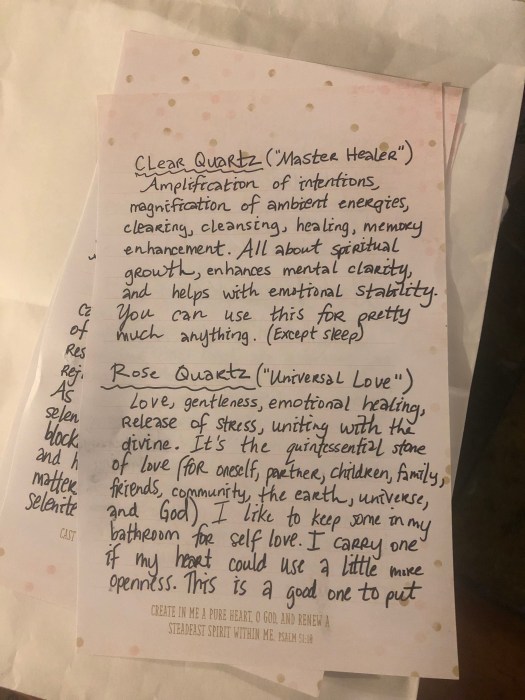 Clear Quartz ("Master Healer")
Amplification of intentions,
magnification of ambient energies,
clearing, cleansing, healing, memory
enhancement. All about spiritual
growth, enhances mental clarity,
and helps with emotional stability.
You can use this for pretty
much anything. (Except sleep)
Rose Quartz ("Universal Love")
Love, gentleness, emotional healing,
Release of stress, uniting with the
divine. It's the quintessential stone
of love (for oneself, partner, children, family,
friends, community, the earth, universe,
and God) I like to keep some in my
bathroom for self love. I carry one
if my heart could use a little more
openness. This is a good one to put
CREATE IN ME A PURE HEART, O GOD, AND RENEW A
STEADFAST SPIRIT WITHIN ME. PSALM 51:10
of
Res
Rej
As
selen
block
and h
matter
selenite
CAST